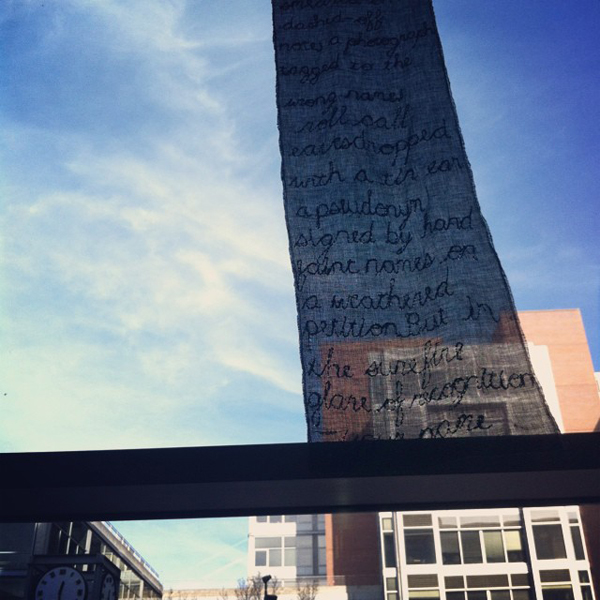 smeared or
dashed-off
notes a photograph
tagged to the
wrong names
roll call
eavesdropped
with a tin ear
a pseudonym
signed by hand
faint names on
a weathered
petition But in
the surefire
glare of recognition
your name